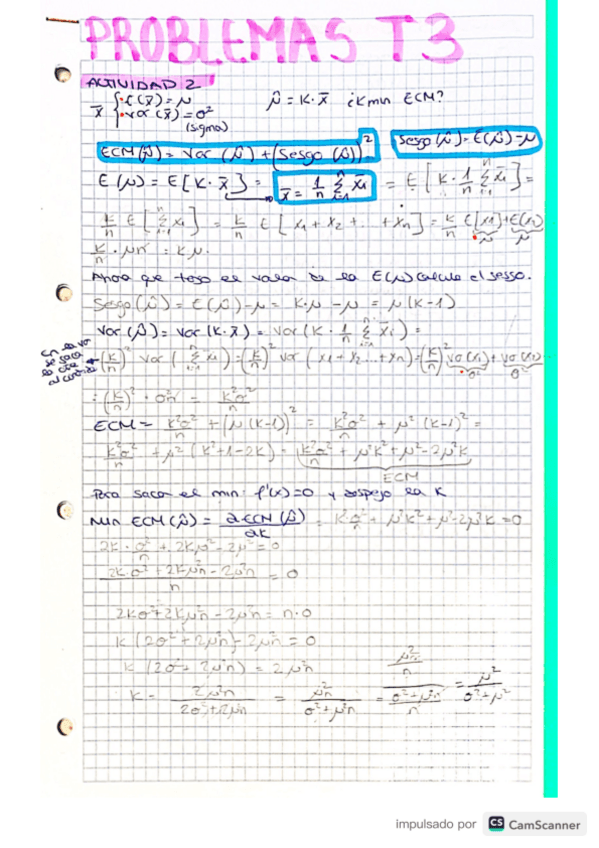 PROBLEMAS T3
ACTIVIDAD 2
x̄ { E(x̄) = μ
Var(x̄) = σ²
(sigma)
μ̂ = K·x̄ ¿K min ECM?
ECM(μ̂) = Var(μ̂) + (Sesgo(μ̂))²
Sesgo(μ̂) = E(μ̂) - μ
E(μ) = E[K·x̄] = x̄ = 1/n Σ xi = E[K·1/n Σ xi] =
K/n E[Σ xi] = K/n E[x1 + x2 + .. + xn] = K/n E(x1) + E(x2)
μ μ
K/n · μn = Kμ.
Ahora que tengo el valor de la E(μ) calculo el sesgo.
Sesgo(μ̂) = E(μ̂) - μ = K·μ - μ = μ(K-1)
Var(μ̂) = Var(K·x̄) = Var(K·1/n Σ xi) =
(K/n)² Var(Σ xi) = (K/n)² Var(x1 + x2 ... + xn) = (K/n)² Var(x1) + Var(x2)
σ² σ²
= (K/n)² · σ²n = K²σ²/n
ECM = K²σ²/n + (μ(K-1))² = K²σ²/n + μ²(K-1)² =
K²σ²/n + μ²(K²+1-2K) = K²σ²/n + μ²K² + μ² - 2μ²K
ECM
Para sacar el min: f'(x)=0 y despejo la K
Min ECM(μ̂) = ∂ECM(μ̂)/∂K = K²σ²/n + μ²K² + μ² - 2μ²K = 0
2K·σ²/n + 2Kμ² - 2μ² = 0
2K·σ² + 2Kμ²n - 2μ²n / n = 0
2Kσ² + 2Kμ²n - 2μ²n = n·0
K(2σ² + 2μ²n) - 2μ²n = 0
K(2σ² + 2μ²n) = 2μ²n
K = 2μ²n / 2σ²+2μ²n = μ²n / σ²+μ²n = μ²n/n / σ²+μ²n/n = μ² / σ²+μ²
impulsado por CS CamScanner